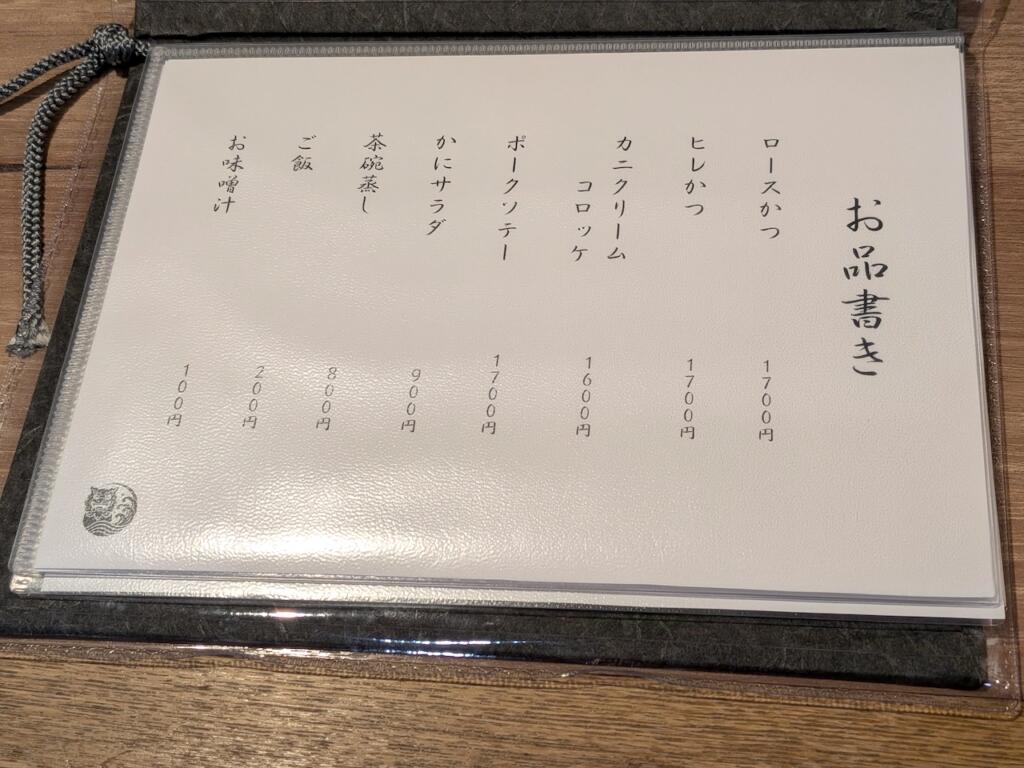 お品書き
ロースかつ
1700円
ヒレかつ
1700円
カニクリーム
コロッケ
1600円
ポークソテー
1700円
かにサラダ
900円
茶碗蒸し
800円
ご飯
200円
お味噌汁
100円